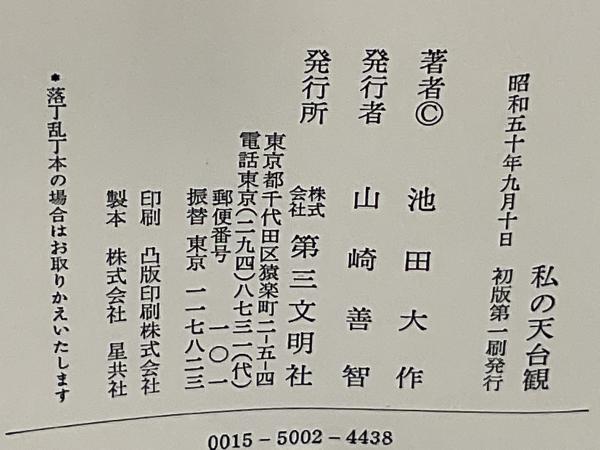 私の天台観
昭和五十年九月十日 初版第一刷発行
著者© 池田大作
発行者 山崎善智
発行所 株式会社 第三文明社
東京都千代田区猿楽町二-五-四
電話東京(二九四)八七三一(代)
郵便番号 一〇一
振替 東京 一一七八二三
印刷 凸版印刷株式会社
製本 株式会社 星共社
*落丁乱丁本の場合はお取りかえいたします
0015-5002-4438